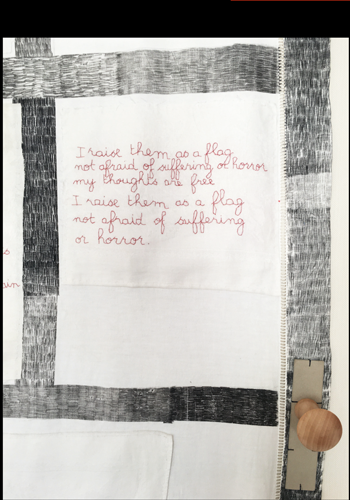 I raise them as a flag
not afraid of suffering or horror
my thoughts are free
I raise them as a flag
not afraid of suffering
or horror.